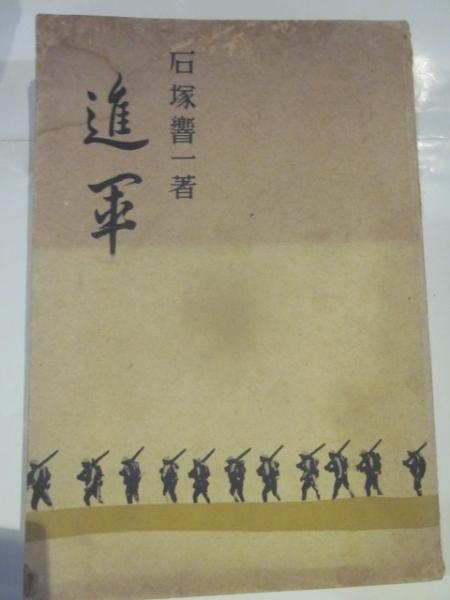 石塚響一著
進軍